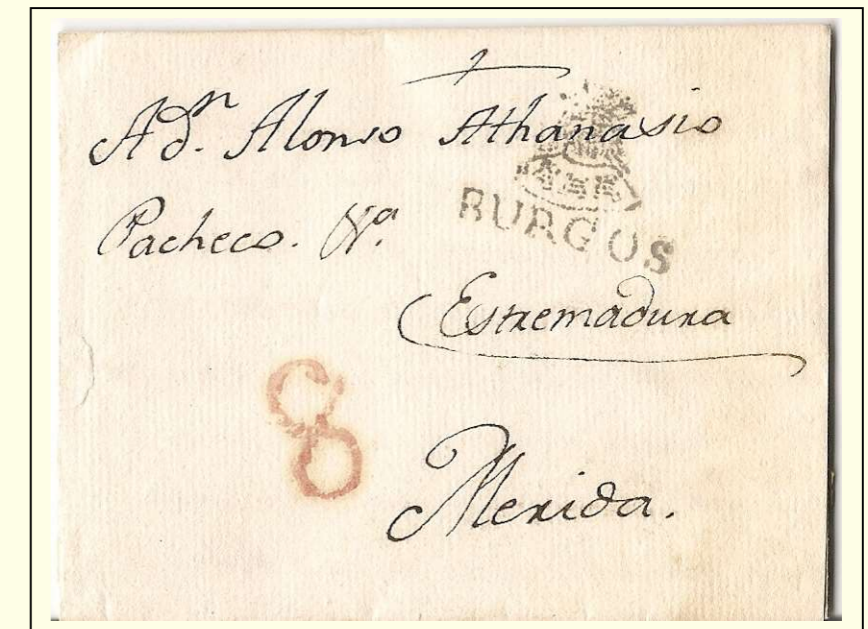 A Dn. Alonso Athanasio
Pacheco.
BURGOS
Estremadura
8
Merida.